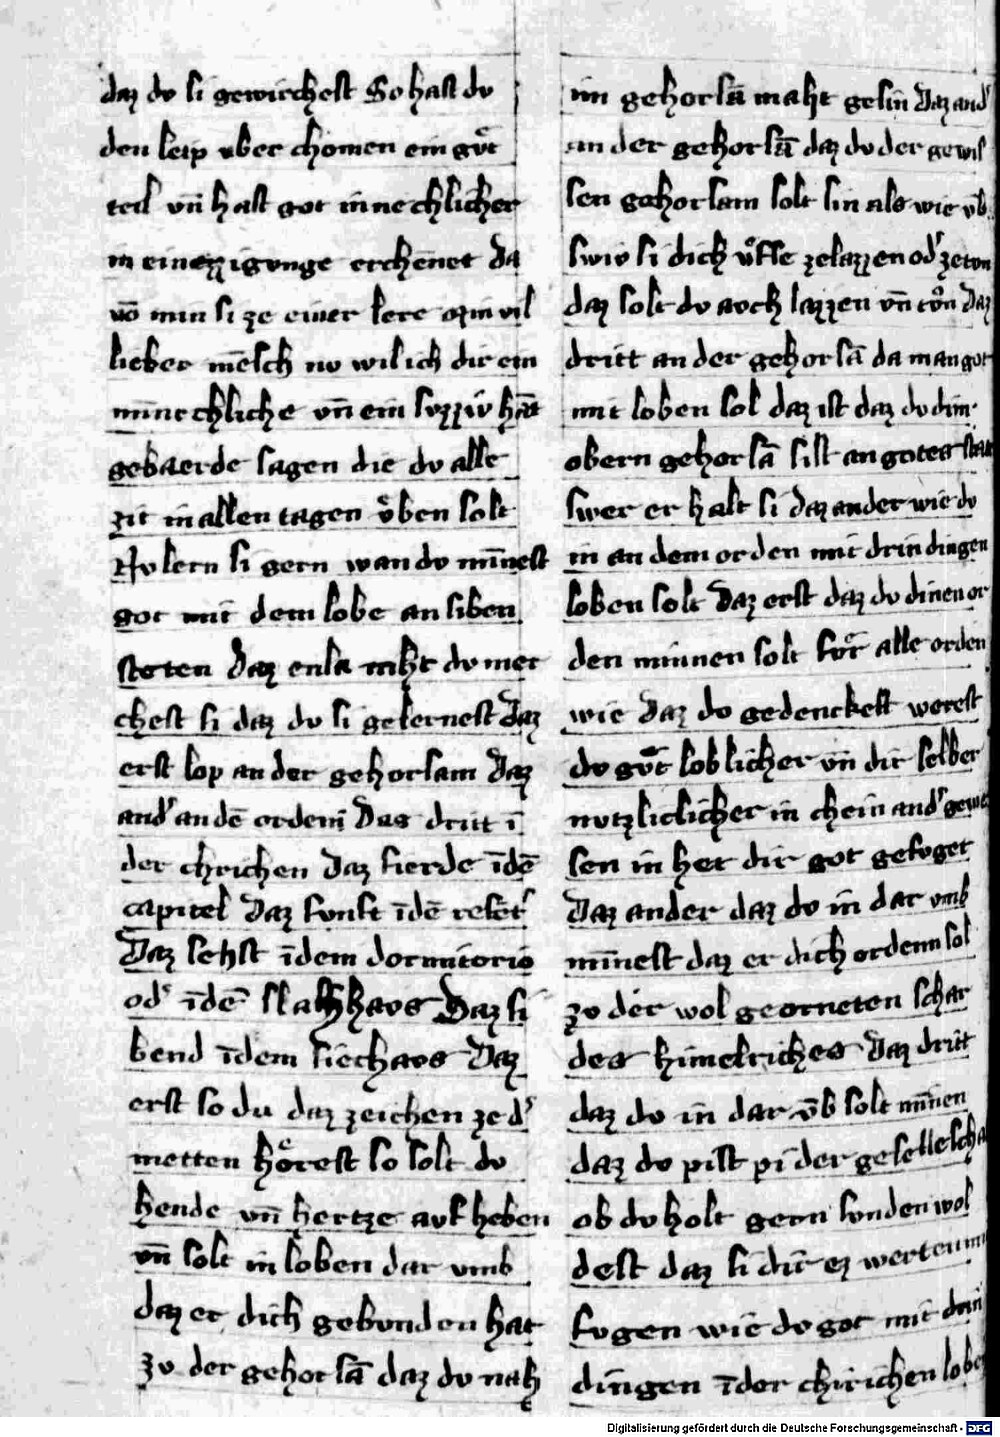 daz dv si gewirchest So hast dv
den leip vber chomen ein gvͦt
teil vn̄ hast got innechlicher
in einer igvnge erchēnet Da
vō min si ze einer lere vil
lieber mēsch nv wil ich dir ein
minnechliche vn̄ ein svzziv
gebaerde sagen die dv alle
zit in allen tagen vͤben solt
Nv lern si gern wan dv mīnest
got mit dem lobe an siben
steten Daz en la niht dv mer
chest si daz dv si gelernest Daz
erst lop an der gehorsam Daz
and' an dē orden Daz dritt ī
der chirchen Daz fierde īdē
capitel Daz fvnft īdē refet'
Daz sehst īdem dormitorio
od' īdē slafhavs Daz si
bend īdem siechavs Daz
erst so du daz zeichen ze d'
metten hoͤrest so solt dv
hende vn̄ hertze avf heben
vn̄ solt in loben dar vmb
daz er dich gebvnden hat
zv der gehorsā daz dv nah
im gehorsā maht gesin Daz and'
an der gehorsā daz dv der gewis
sen gehorsam solt sin als wie vb
swiv si dich vͤffe ze lazzen od' ze tvn
daz solt dv avch lazzen vn̄ tvͦn Daz
dritt an der gehorsā da man got
mit loben sol daz ist daz dv dim
obern gehorsā sist an gotes stat
swer er halt si Daz ander wie dv
in an dem orden mit drin dingen
loben solt Daz erst daz dv dinen or
den minnen solt fvͤr alle orden
wie Daz dv gedenckest werest
dv gvͦt loblicher vn̄ dir selber
nvtzlicher in chein and' gewe
sen in het dir got gefvget
Daz ander daz dv in dar vmb
mīnest daz er dich ordenn sol
zv der wol georneten schar
des himelriches Daz dritt
daz dv in dar vb solt mīnen
daz dv pist pi der geselleschaft
ob dv holt gern svnden wol
dest daz si dir ez werten
fvgen wie dv got mit drin
dingen īder chirichen loben
Digitalisierung gefördert durch die Deutsche Forschungsgemeinschaft - DFG